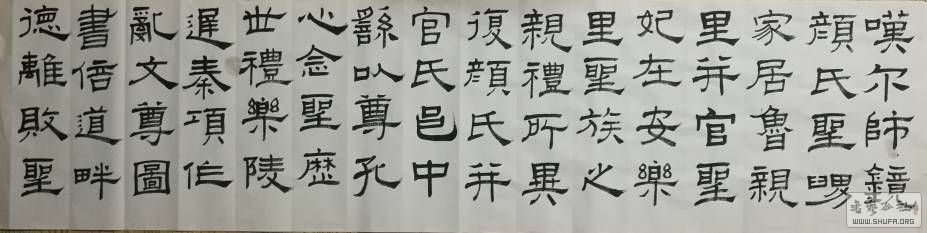 嘆尔師鏡
顏氏聖舅
家居魯親
里并官聖
妃在安樂
里聖族之
親禮所異
復顏氏并
官氏邑中
繇以尊孔
心念聖歷
世禮樂陵
遲秦項作
亂文尊圖
書倍道畔
德離敗聖
WWW.SHUFA.ORG